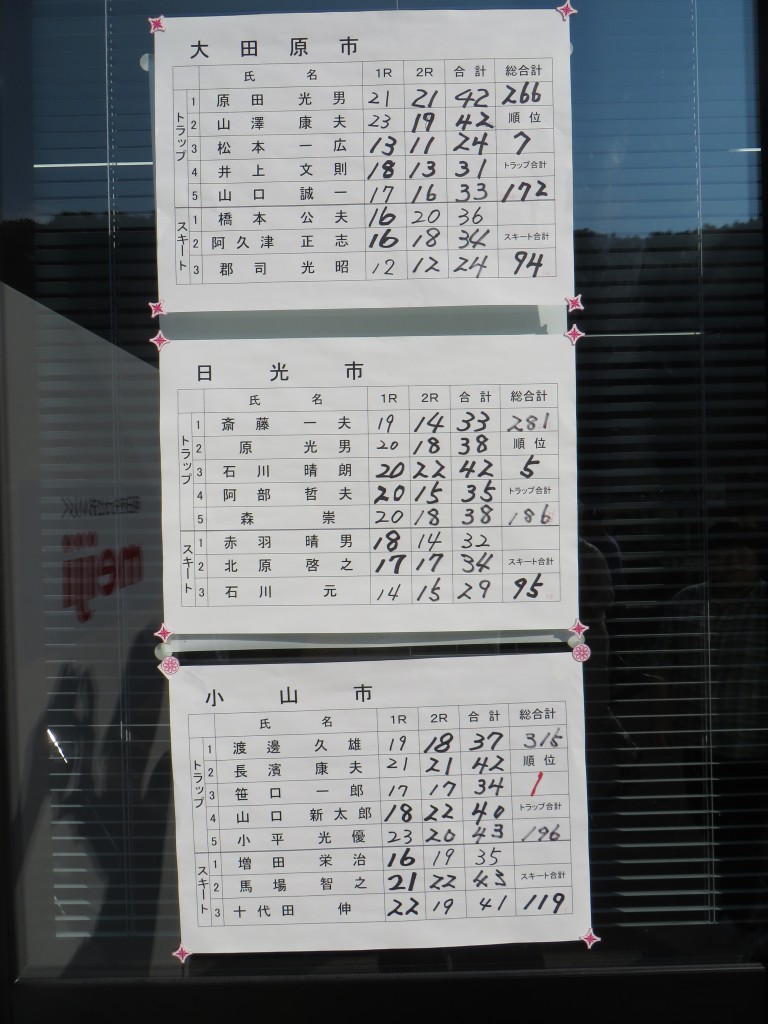 大田原市
氏 名 1R 2R 合計 総合計
トラップ
1 原田 光男 21 21 42 266
2 山澤 康夫 23 19 42 順位
3 松本 一広 13 11 24 7
4 井上 文則 18 13 31 トラップ合計
5 山口 誠一 17 16 33 172
スキート
1 橋本 公夫 16 20 36
2 阿久津 正志 16 18 34 スキート合計
3 郡司 光昭 12 12 24 94
日光市
氏 名 1R 2R 合計 総合計
トラップ
1 斎藤 一夫 19 14 33 281
2 原 光男 20 18 38 順位
3 石川 晴朗 20 22 42 5
4 阿部 哲夫 20 15 35 トラップ合計
5 森 崇 20 18 38 186
スキート
1 赤羽 晴男 18 14 32
2 北原 啓之 17 17 34 スキート合計
3 石川 元 14 15 29 95
小山市
氏 名 1R 2R 合計 総合計
トラップ
1 渡邊 久雄 19 18 37 315
2 長濱 康夫 21 21 42 順位
3 笹口 一郎 17 17 34 1
4 山口 新太郎 18 22 40 トラップ合計
5 小平 光優 23 20 43 196
スキート
1 増田 栄治 16 19 35
2 馬場 智之 21 22 43 スキート合計
3 十代田 伸 22 19 41 119
meiji